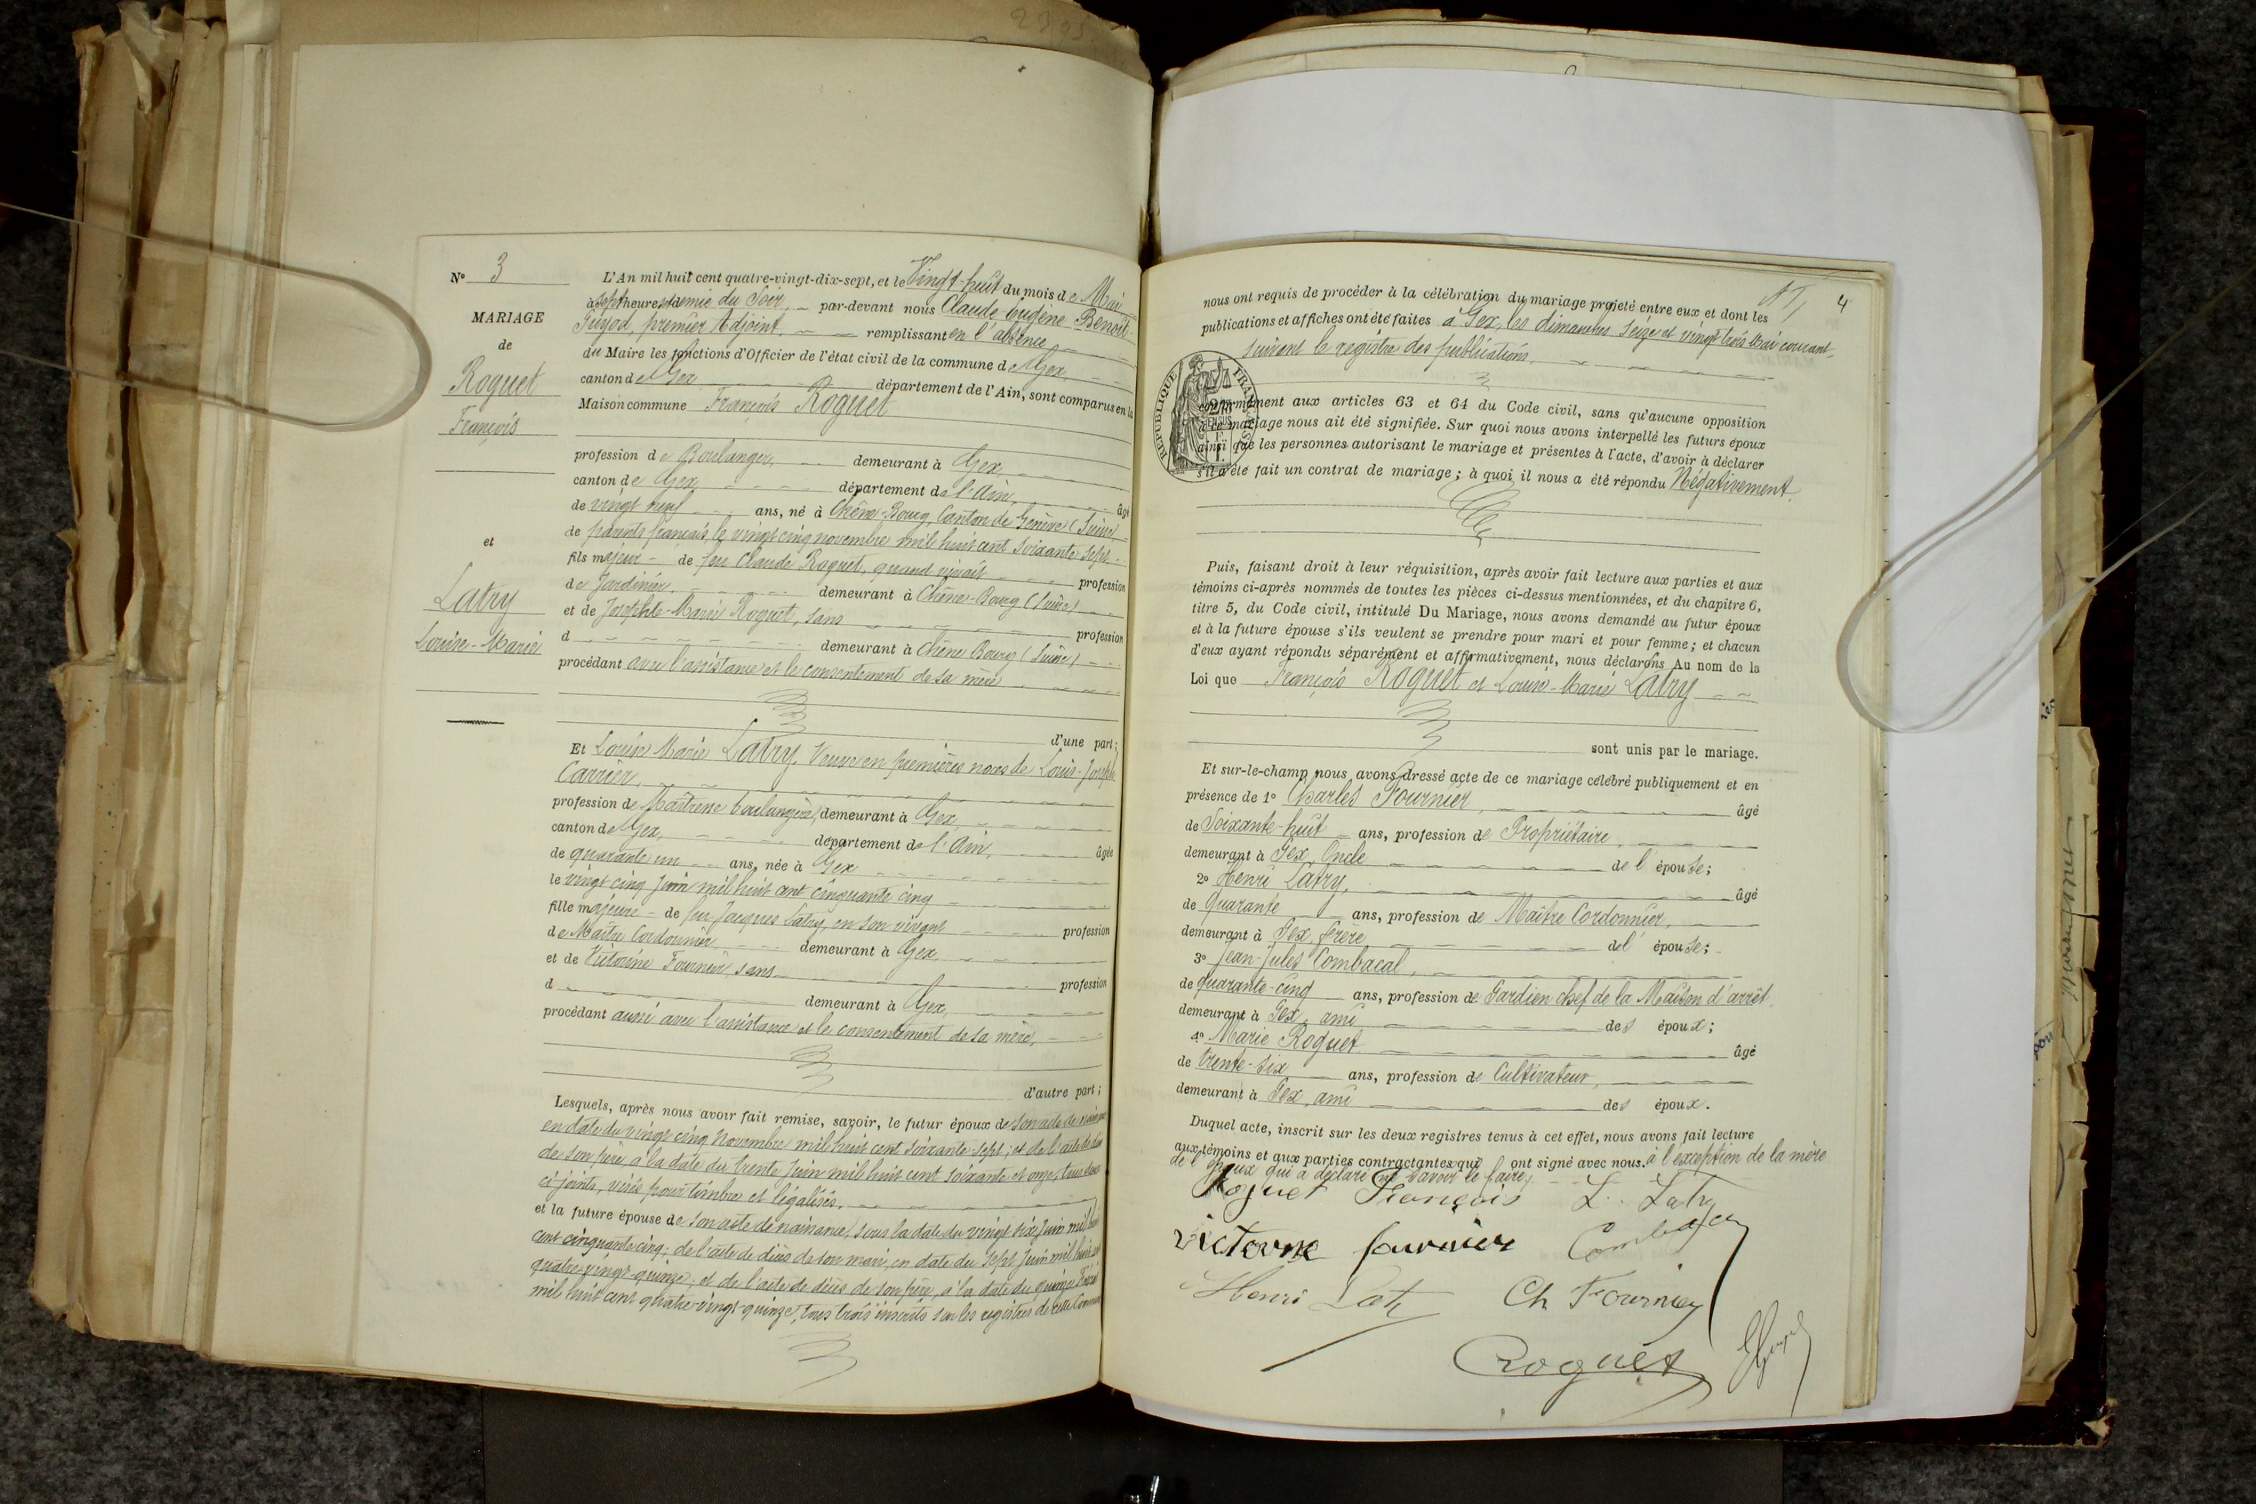 N° 3
MARIAGE
de
Roquet
François
et
Latry
Louise-Marie
L'An mil huit cent quatre-vingt-dix-sept, et le Vingt-huit du mois de Mai
à sept heures et demie du Soir, par-devant nous Claude Eugène Benoit
Guyod, premier Adjoint, remplissant en l'absence
du Maire les fonctions d'Officier de l'état civil de la commune de Gex,
canton de Gex département de l'Ain, sont comparus en la
Maison commune François Roquet
profession de Boulanger, demeurant à Gex
canton de Gex, département de l'Ain âgé
de vingt neuf ans, né à Chêne-Bourg, Canton de Genève (Suisse)
de parents français, le vingt cinq novembre mil huit cent soixante-sept
fils majeur de feu Claude Roquet, quand vivait profession
de Jardinier, demeurant à Chêne-Bourg (Suisse)
et de Josephte-Marie Roquet, sans profession
d demeurant à Chêne Bourg (Suisse)
procédant avec l'assistance et le consentement de sa mère
d'une part;
Et Louise Marie Latry, Veuve en premières noces de Louis-Joseph
Carrier,
profession de Maîtresse boulangère, demeurant à Gex,
canton de Gex, département de l'Ain, âgée
de quarante un ans, née à Gex
le vingt cinq Juin mil huit cent cinquante cinq
fille majeure de feu Jacques Latry, en son vivant profession
de Maître Cordonnier demeurant à Gex,
et de Victorine Fournier, sans profession
d demeurant à Gex,
procédant aussi avec l'assistance et le consentement de sa mère,
d'autre part;
Lesquels, après nous avoir fait remise, savoir, le futur époux de son acte de naissance
en date du vingt cinq Novembre mil huit cent soixante-sept; et de l'acte de décès
de son père, à la date du trente Juin mil huit cent soixante et onze, tous deux
ci-joints, visés pour timbre et légalisés.
et la future épouse de son acte de naissance, sous la date du vingt six Juin mil huit
cent cinquante cinq; de l'acte de décès de son mari, en date du sept Juin mil huit cent
quatre vingt-quinze; et de l'acte de décès de son père, à la date du quinze
mil huit cent quatre-vingt-quinze, tous trois inscrits sur les registres de cette Commune
4
nous ont requis de procéder à la célébration du mariage projeté entre eux et dont les
publications et affiches ont été faites à Gex, les dimanches seize et vingt trois Mai courant
suivant le registre des publications.
RÉPUBLIQUE FRANÇAISE
conformément aux articles 63 et 64 du Code civil, sans qu'aucune opposition
à ce mariage nous ait été signifiée. Sur quoi nous avons interpellé les futurs époux
ainsi que les personnes autorisant le mariage et présentes à l'acte, d'avoir à déclarer
s'il a été fait un contrat de mariage; à quoi il nous a été répondu Négativement.
Puis, faisant droit à leur réquisition, après avoir fait lecture aux parties et aux
témoins ci-après nommés de toutes les pièces ci-dessus mentionnées, et du chapitre 6,
titre 5, du Code civil, intitulé Du Mariage, nous avons demandé au futur époux
et à la future épouse s'ils veulent se prendre pour mari et pour femme; et chacun
d'eux ayant répondu séparément et affirmativement, nous déclarons Au nom de la
Loi que François Roquet et Louise-Marie Latry
sont unis par le mariage.
Et sur-le-champ nous avons dressé acte de ce mariage célébré publiquement et en
présence de 1° Charles Fournier, âgé
de Soixante-huit ans, profession de Propriétaire,
demeurant à Gex, Oncle de l'épouse;
2° Henri Latry, âgé
de Quarante ans, profession de Maître Cordonnier,
demeurant à Gex, frère de l'épouse;
3° Jean-Jules Combacal,
de quarante-cinq ans, profession de Gardien chef de la Maison d'arrêt
demeurant à Gex, ami des époux;
4° Marie Roquet âgé
de trente-six ans, profession de Cultivateur,
demeurant à Gex, ami des époux.
Duquel acte, inscrit sur les deux registres tenus à cet effet, nous avons fait lecture
aux témoins et aux parties contractantes qui ont signé avec nous. à l'exception de la mère
de l'époux qui a déclaré ne savoir le faire,
Roquet François L. Latry
Victorine fournier Combacal
Henri Latry Ch Fournier
Roquet